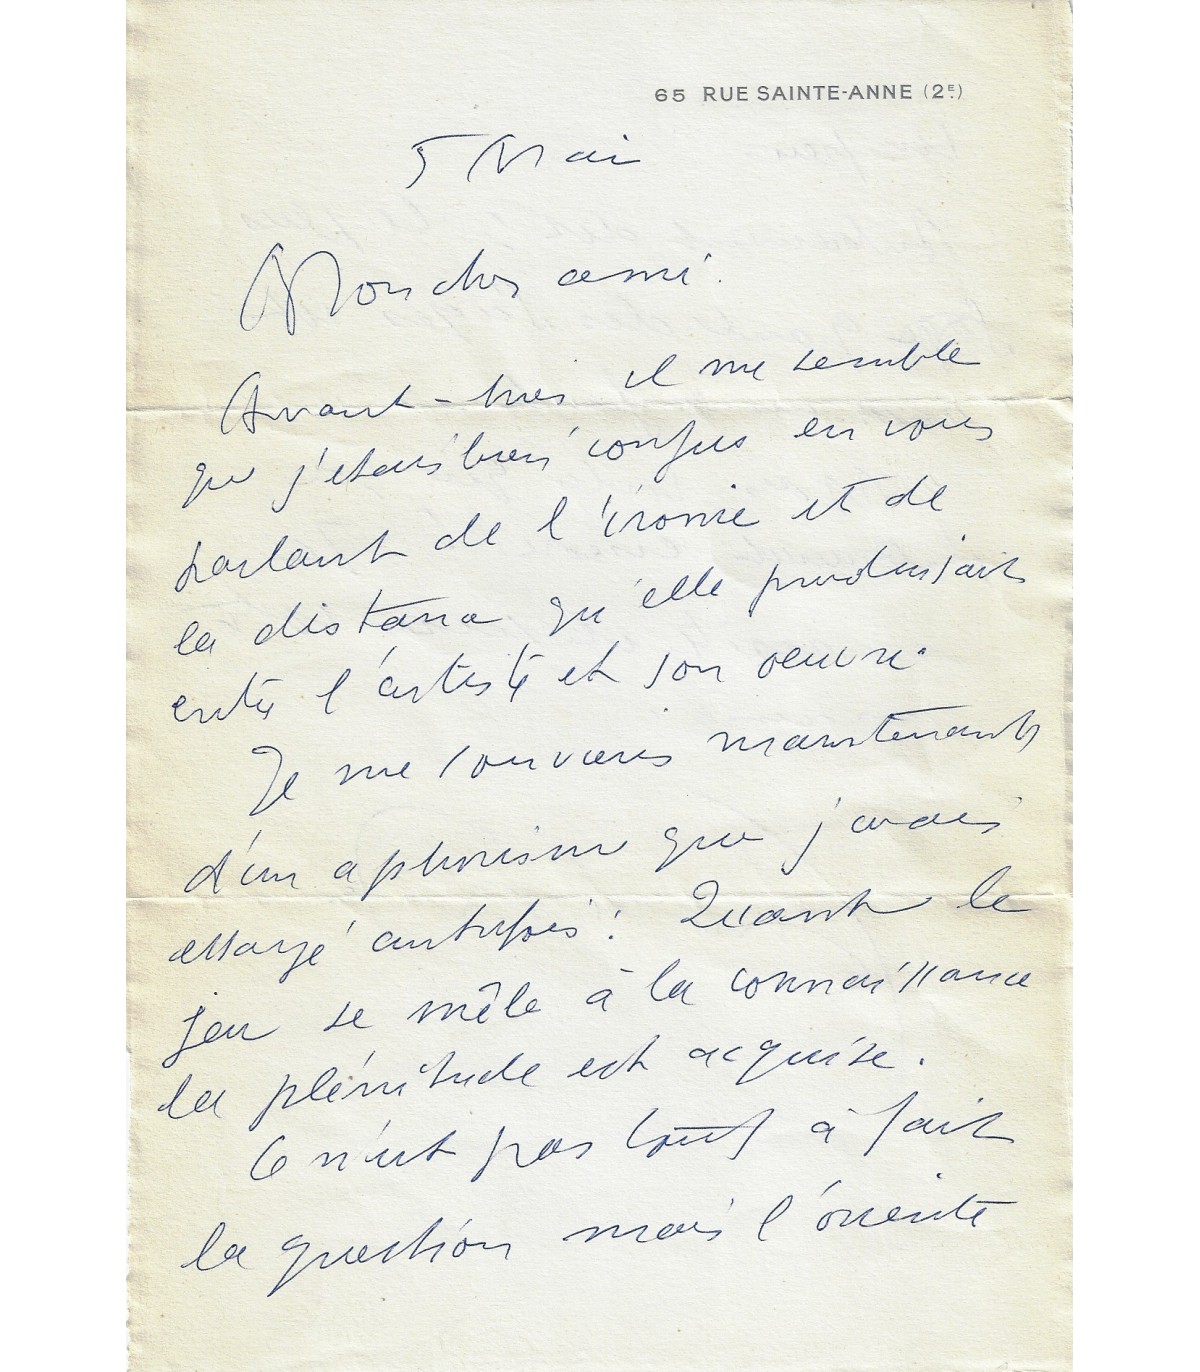 65 RUE SAINTE-ANNE (2E.)
5 Mai
Mon cher ami.
Avant-hier il me semble
que j'étais bien confus en vous
parlant de l'ironie et de
la distance qu'elle produisait
entre l'artiste et son oeuvre.
Je me souviens maintenant
d'un aphorisme que j'avais
essayé autrefois : Quand le
jeu se mêle à la connaissance
la plénitude est acquise.
Ce n'est pas tout à fait
la question mais l'oriente